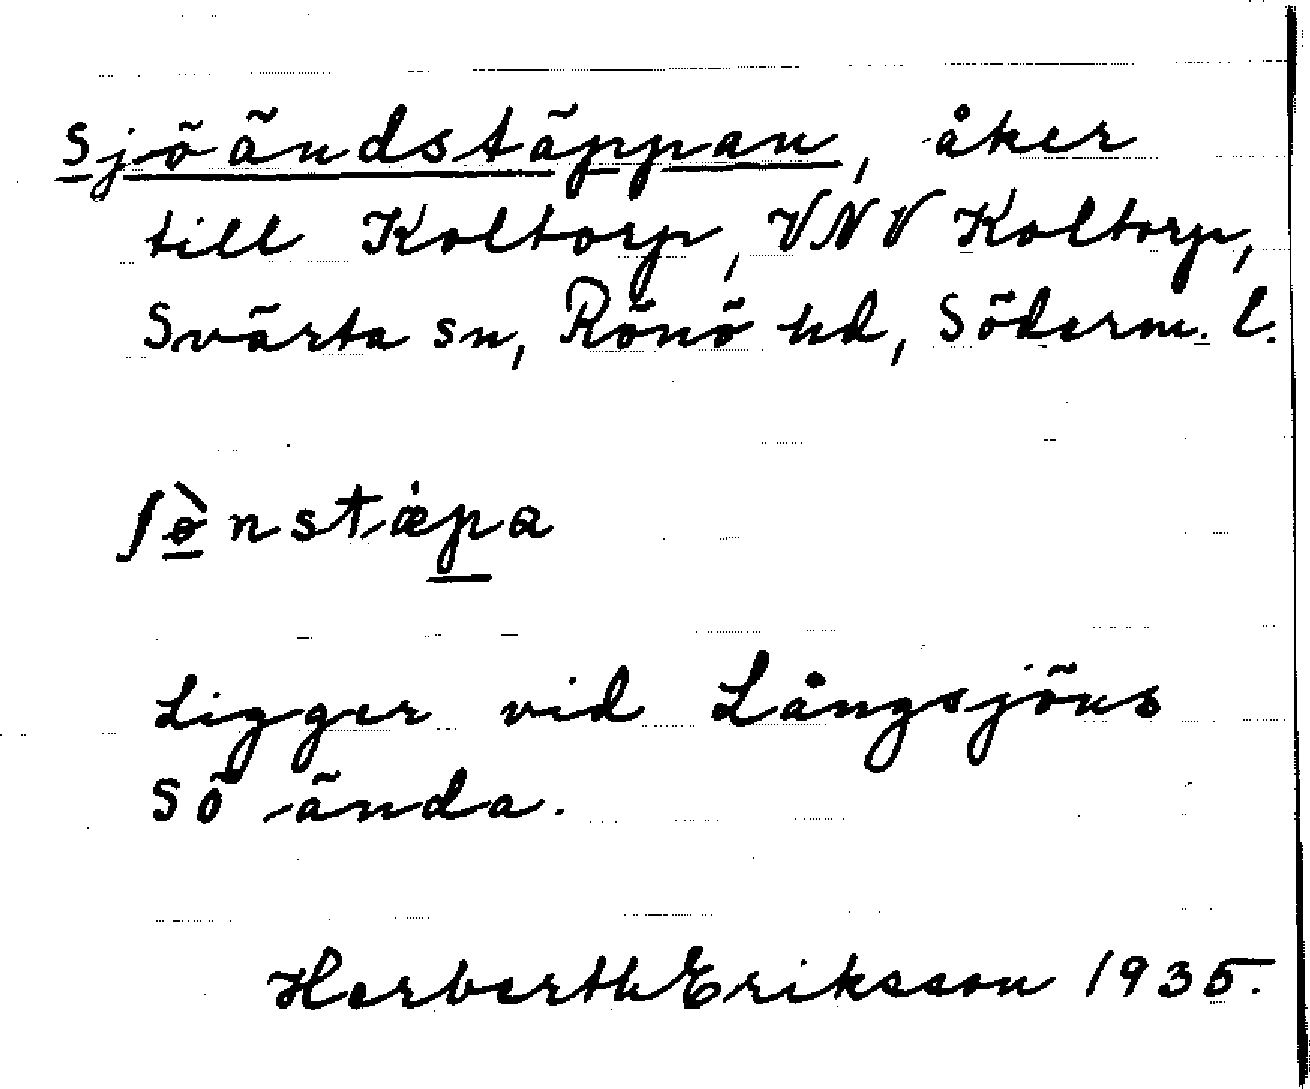 Sjöändstäppan, åker
till Koltorp, VNV Koltorp,
Svärta sn, Rönö hd, Söderm. l.
ʃø̀nstæpa
Ligger vid Långsjöns
SÖ ända.
Herberth Eriksson 1935.